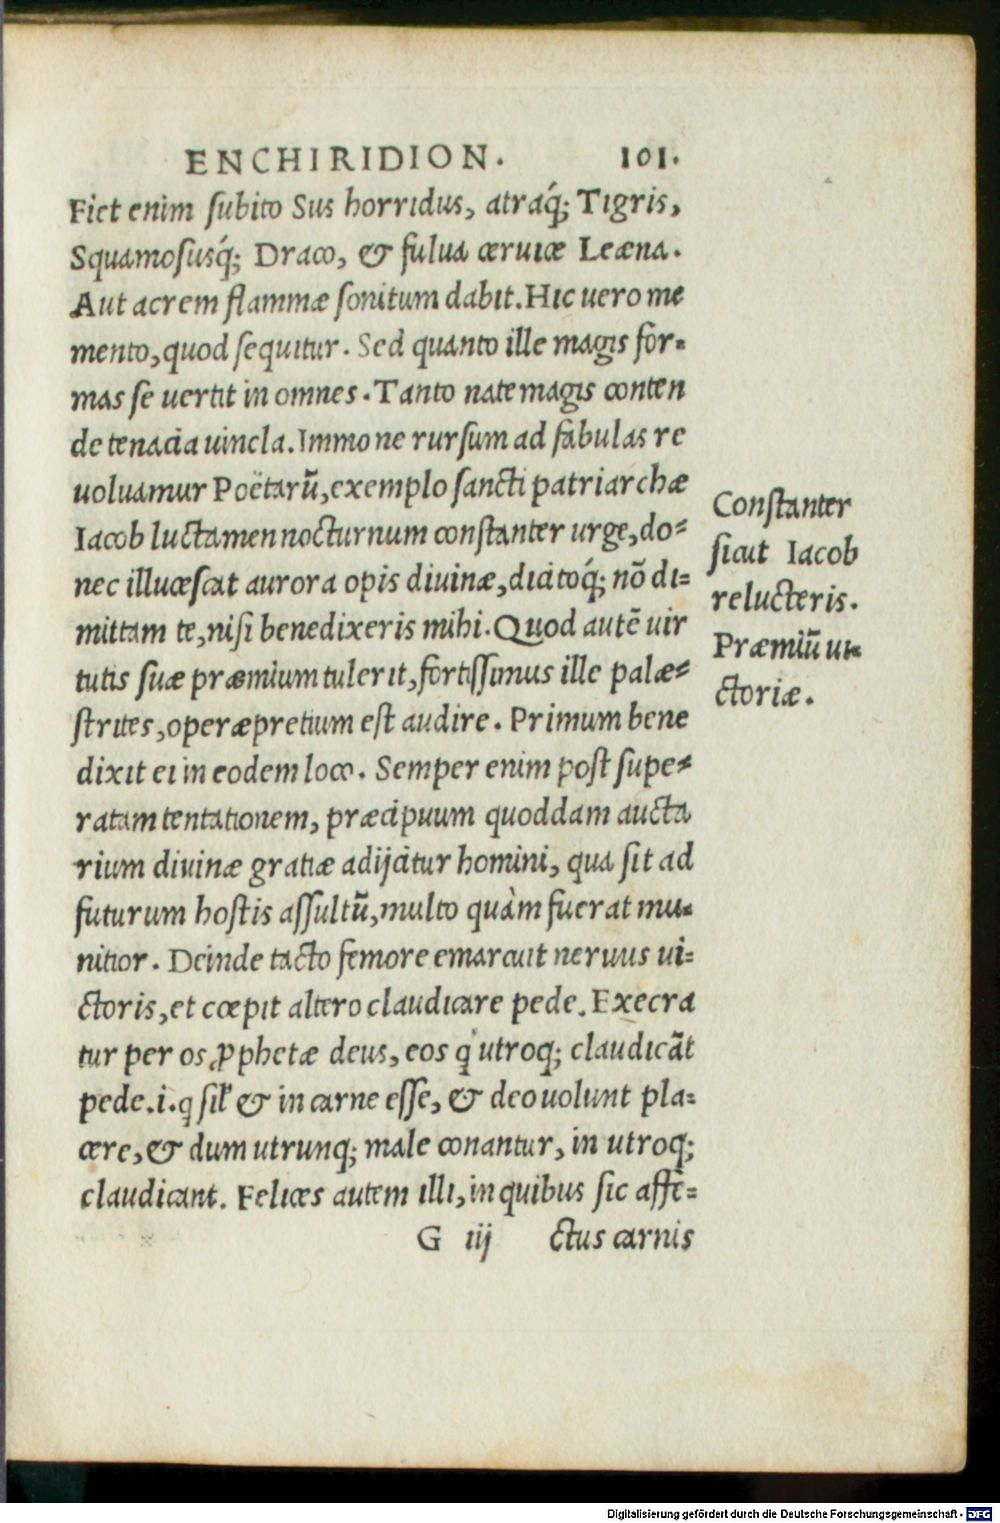 ENCHIRIDION. 101.
Fiet enim ſubito Sus horridus, atraq́; Tigris,
Squamoſusq́; Draco, & fulua ceruice Leæna.
Aut acrem flammæ ſonitum dabit. Hic uero me
mento, quod ſequitur. Sed quanto ille magis for-
mas ſe uertit in omnes. Tanto nate magis conten
de tenacia uincla. Immo ne rurſum ad fabulas re
uoluamur Poëtarū, exemplo ſancti patriarchæ
Iacob luctamen nocturnum conſtanter urge, do-
nec illuceſcat aurora opis diuinæ, dicitoq́; nō di-
mittam te, niſi benedixeris mihi. Quod autē uir
tutis ſuæ præmium tulerit, fortiſſimus ille palæ-
ſtrites, operæpretium eſt audire. Primum bene
dixit ei in eodem loco. Semper enim poſt ſupe-
ratam tentationem, præcipuum quoddam aucta
rium diuinæ gratiæ adijcitur homini, qua ſit ad
futurum hoſtis aſſultū, multo quàm fuerat mu-
nitior. Deinde tacto femore emarcuit neruus ui-
ctoris, et cœpit altero claudicare pede. Execra
tur per os ꝓphetæ deus, eos q' utroq; claudicāt
pede. i. q ſil' & in carne eſſe, & deo uolunt pla-
cere, & dum utrunq; male conantur, in utroq;
claudicant. Felices autem illi, in quibus ſic affe-
G iij ctus carnis
Conſtanter
ſicut Iacob
relucteris.
Præmiū ui-
ctoriæ.
Digitalisierung gefördert durch die Deutsche Forschungsgemeinschaft - DFG